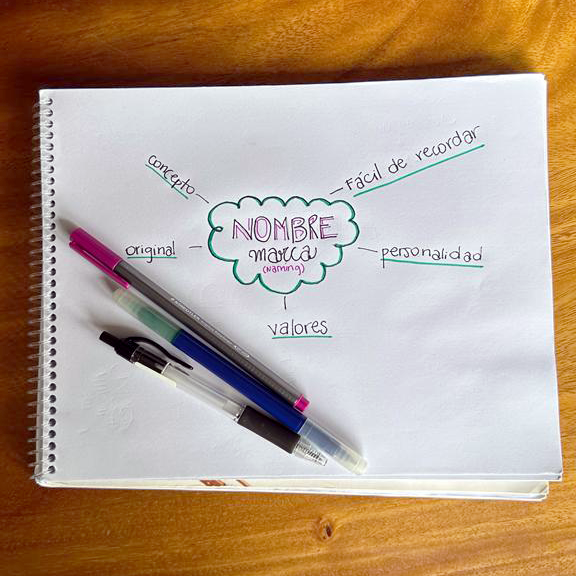 concepto
Fácil de recordar
NOMBRE
marca
(Naming)
original
personalidad
valores